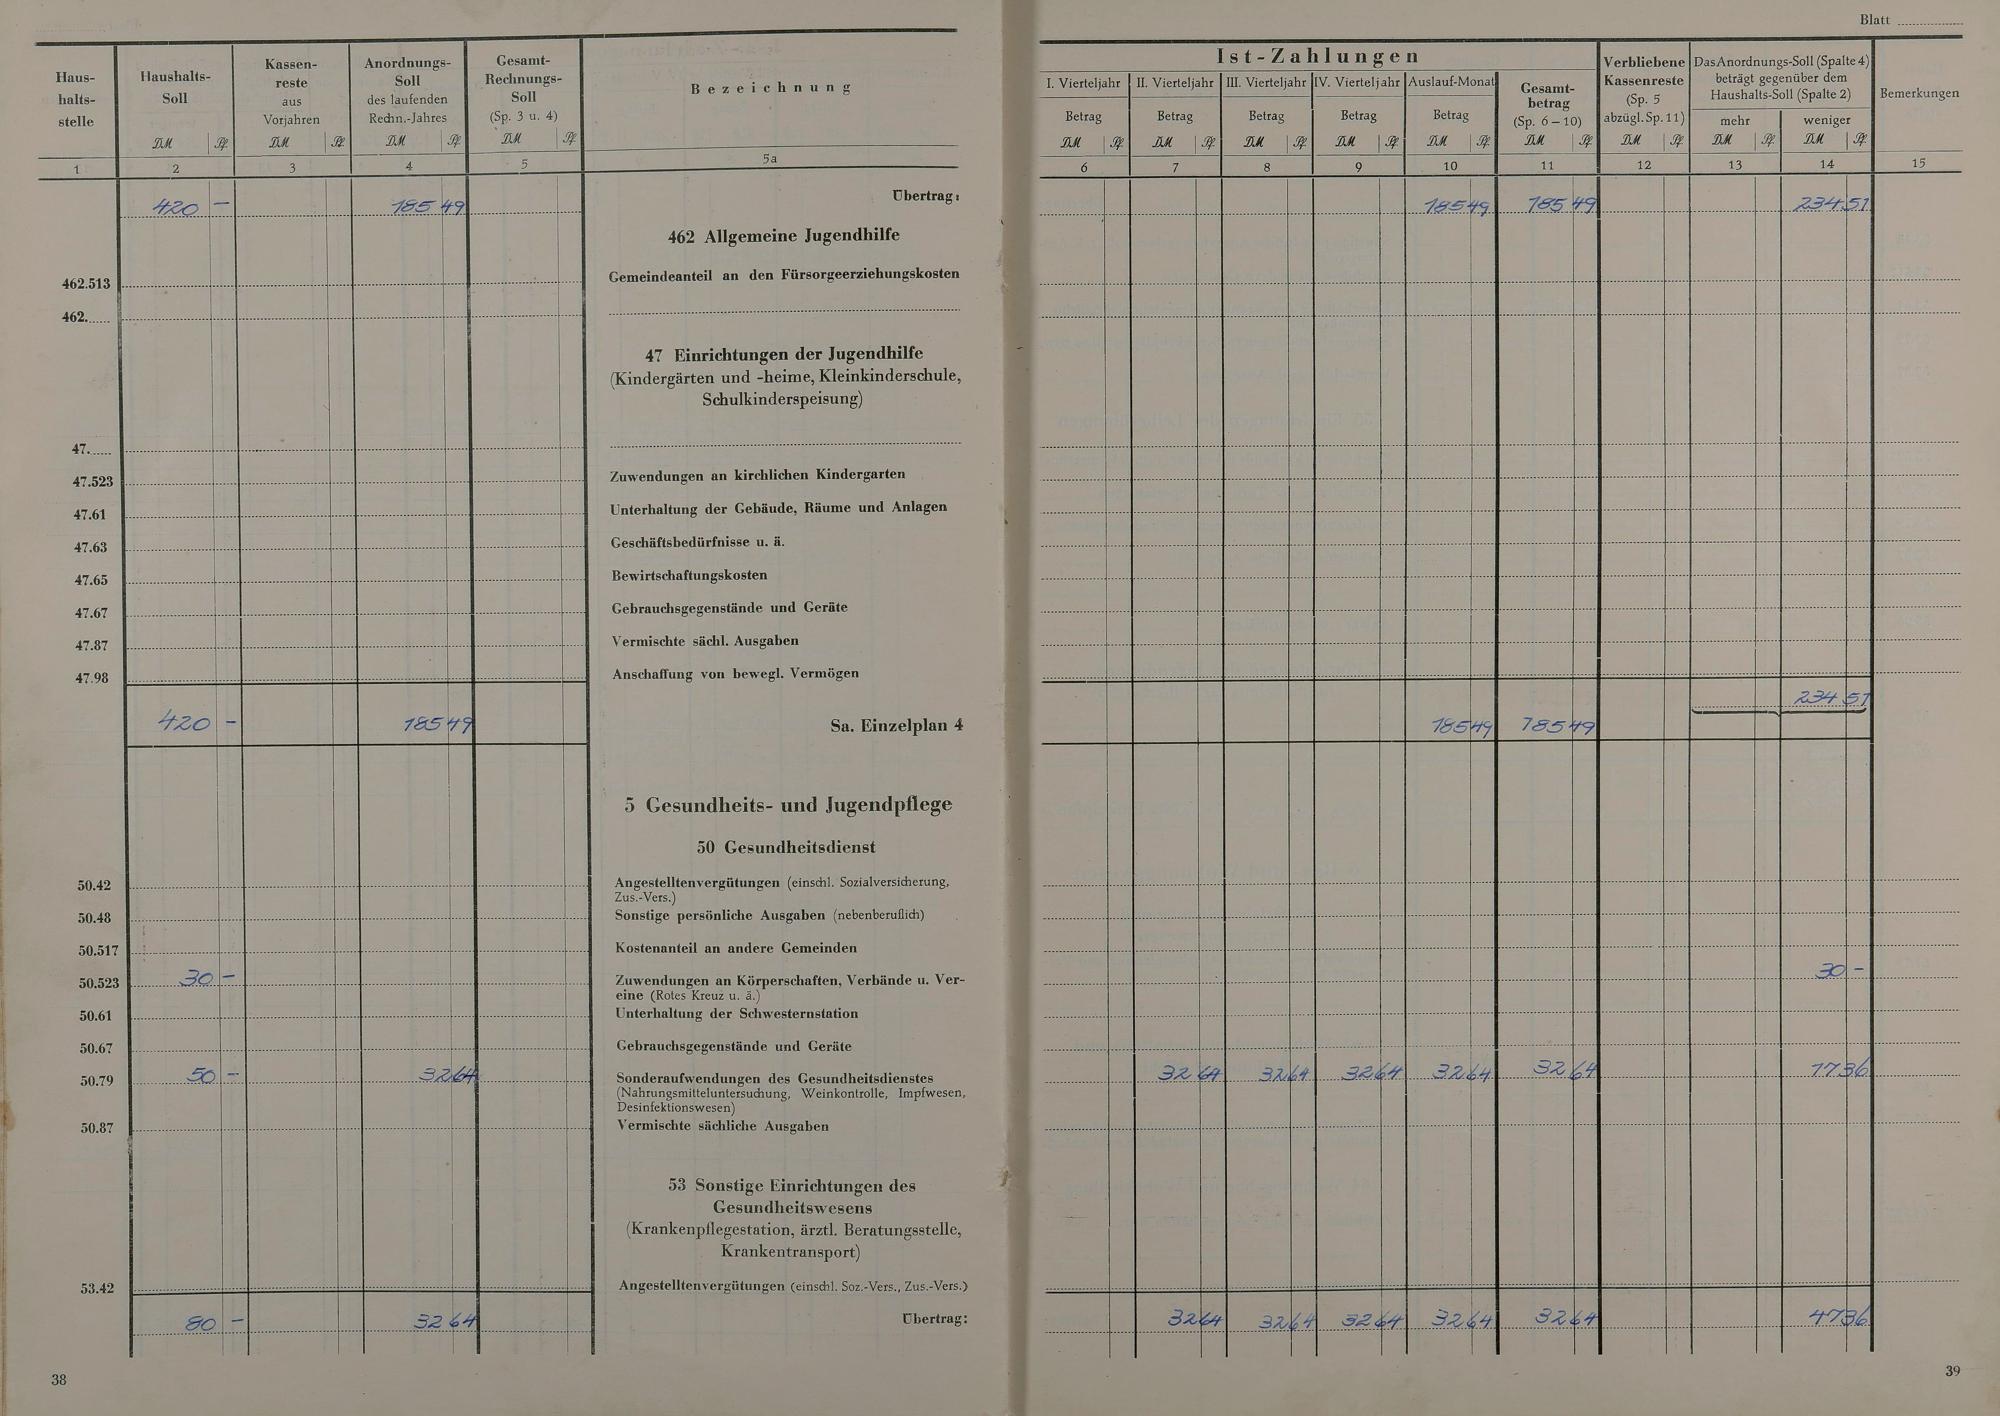 Blatt
Haus-
halts-
stelle
Haushalts-
Soll
DM Pf.
Kassen-
reste
aus
Vorjahren
DM Pf.
Anordnungs-
Soll
des laufenden
Rechn.-Jahres
DM Pf.
Gesamt-
Rechnungs-
Soll
(Sp. 3 u. 4)
DM Pf.
Bezeichnung
Ist-Zahlungen
I. Vierteljahr
Betrag
DM Pf.
II. Vierteljahr
Betrag
DM Pf.
III. Vierteljahr
Betrag
DM Pf.
IV. Vierteljahr
Betrag
DM Pf.
Auslauf-Monat
Betrag
DM Pf.
Gesamt-
betrag
(Sp. 6 – 10)
DM Pf.
Verbliebene
Kassenreste
(Sp. 5
abzügl. Sp. 11)
DM Pf.
Das Anordnungs-Soll (Spalte 4)
beträgt gegenüber dem
Haushalts-Soll (Spalte 2)
mehr
DM Pf.
weniger
DM Pf.
Bemerkungen
1 2 3 4 5 5a 6 7 8 9 10 11 12 13 14 15
420 – 185 49 Übertrag: 185 49 185 49 234 51
462 Allgemeine Jugendhilfe
462.513 Gemeindeanteil an den Fürsorgeerziehungskosten
462.......
47 Einrichtungen der Jugendhilfe
(Kindergärten und -heime, Kleinkinderschule,
Schulkinderspeisung)
47.......
47.523 Zuwendungen an kirchlichen Kindergarten
47.61 Unterhaltung der Gebäude, Räume und Anlagen
47.63 Geschäftsbedürfnisse u. ä.
47.65 Bewirtschaftungskosten
47.67 Gebrauchsgegenstände und Geräte
47.87 Vermischte sächl. Ausgaben
47.98 Anschaffung von bewegl. Vermögen
234 51
420 – 185 49 Sa. Einzelplan 4 185 49 185 49
5 Gesundheits- und Jugendpflege
50 Gesundheitsdienst
50.42 Angestelltenvergütungen (einschl. Sozialversicherung,
Zus.-Vers.)
50.48 Sonstige persönliche Ausgaben (nebenberuflich)
50.517 Kostenanteil an andere Gemeinden
50.523 30 – Zuwendungen an Körperschaften, Verbände u. Ver- 30 –
eine (Rotes Kreuz u. ä.)
50.61 Unterhaltung der Schwesternstation
50.67 Gebrauchsgegenstände und Geräte
50.79 50 – 32 64 Sonderaufwendungen des Gesundheitsdienstes 32 64 32 64 32 64 32 64 32 64 17 36
(Nahrungsmitteluntersuchung, Weinkontrolle, Impfwesen,
Desinfektionswesen)
50.87 Vermischte sächliche Ausgaben
53 Sonstige Einrichtungen des
Gesundheitswesens
(Krankenpflegestation, ärztl. Beratungsstelle,
Krankentransport)
53.42 Angestelltenvergütungen (einschl. Soz.-Vers., Zus.-Vers.)
80 – 32 64 Übertrag: 32 64 32 64 32 64 32 64 32 64 47 36
38
39